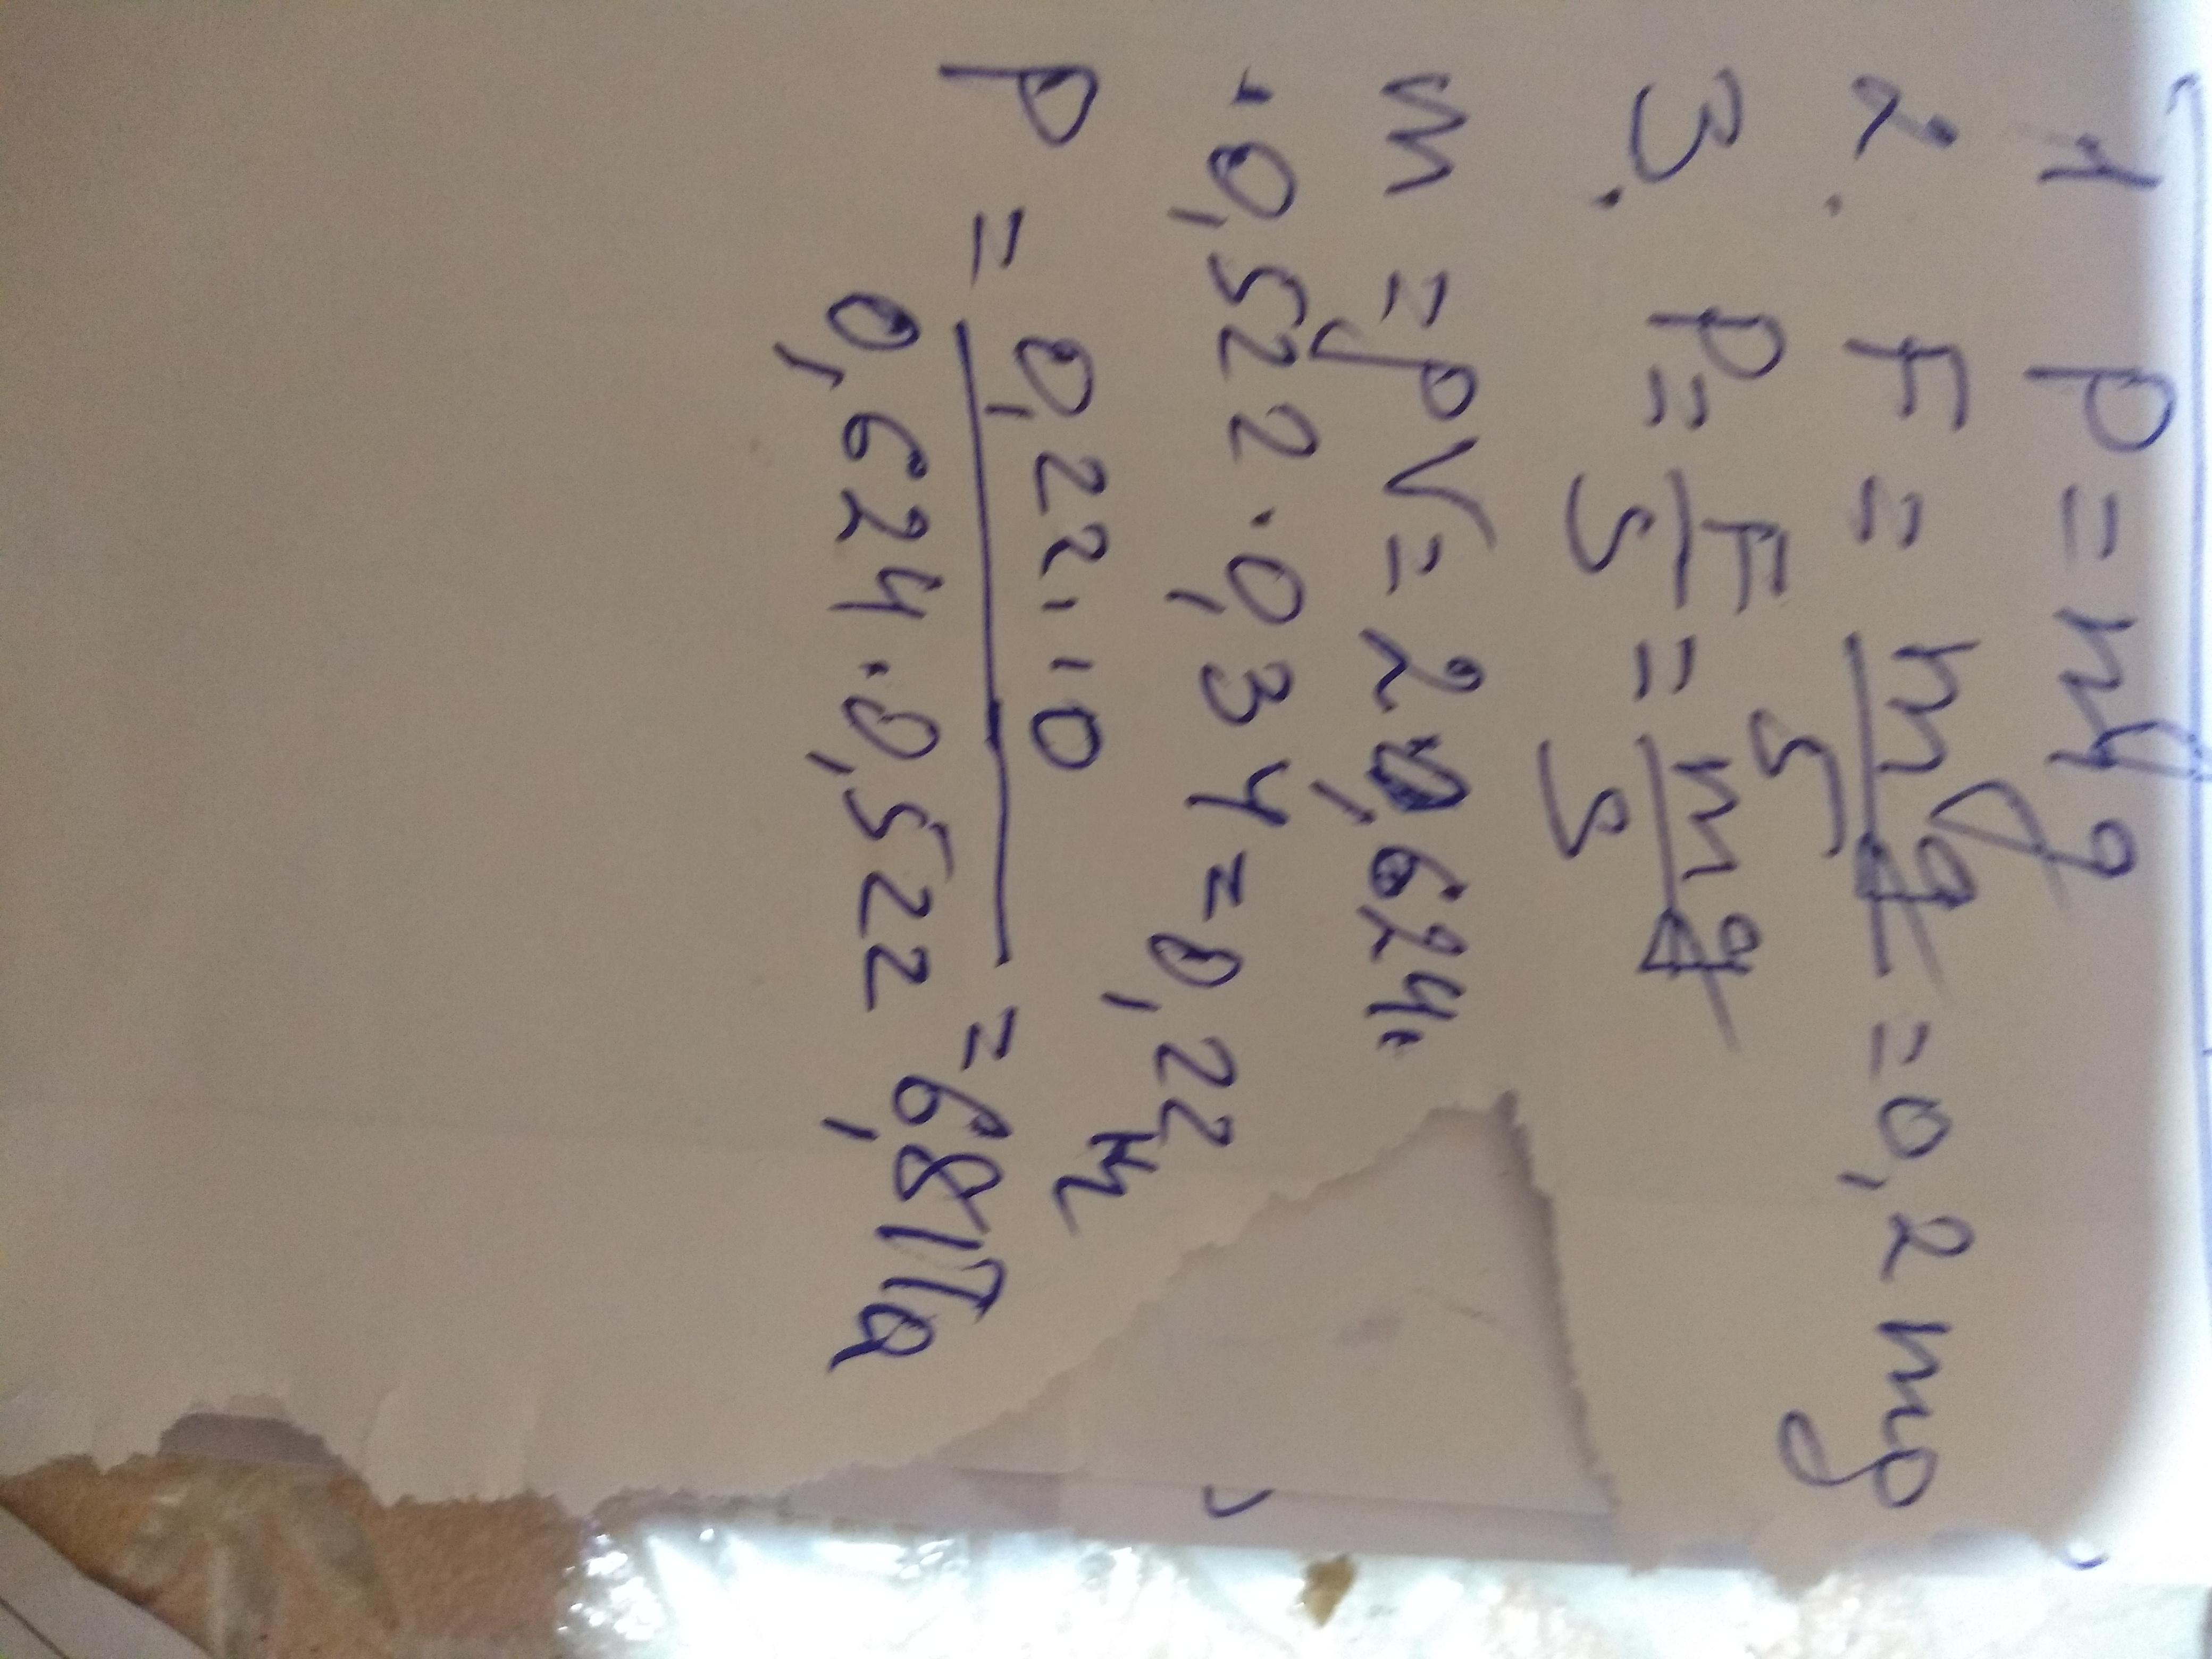 1 P = mg
2. F = mg/5 = 0,2 mg
3. P = F/S = mg/S
m = ρV = 20,624.
·0,522·0,34 = 0,22 кг
P = 0,22·10/0,624·0,522 = 6,8 Па